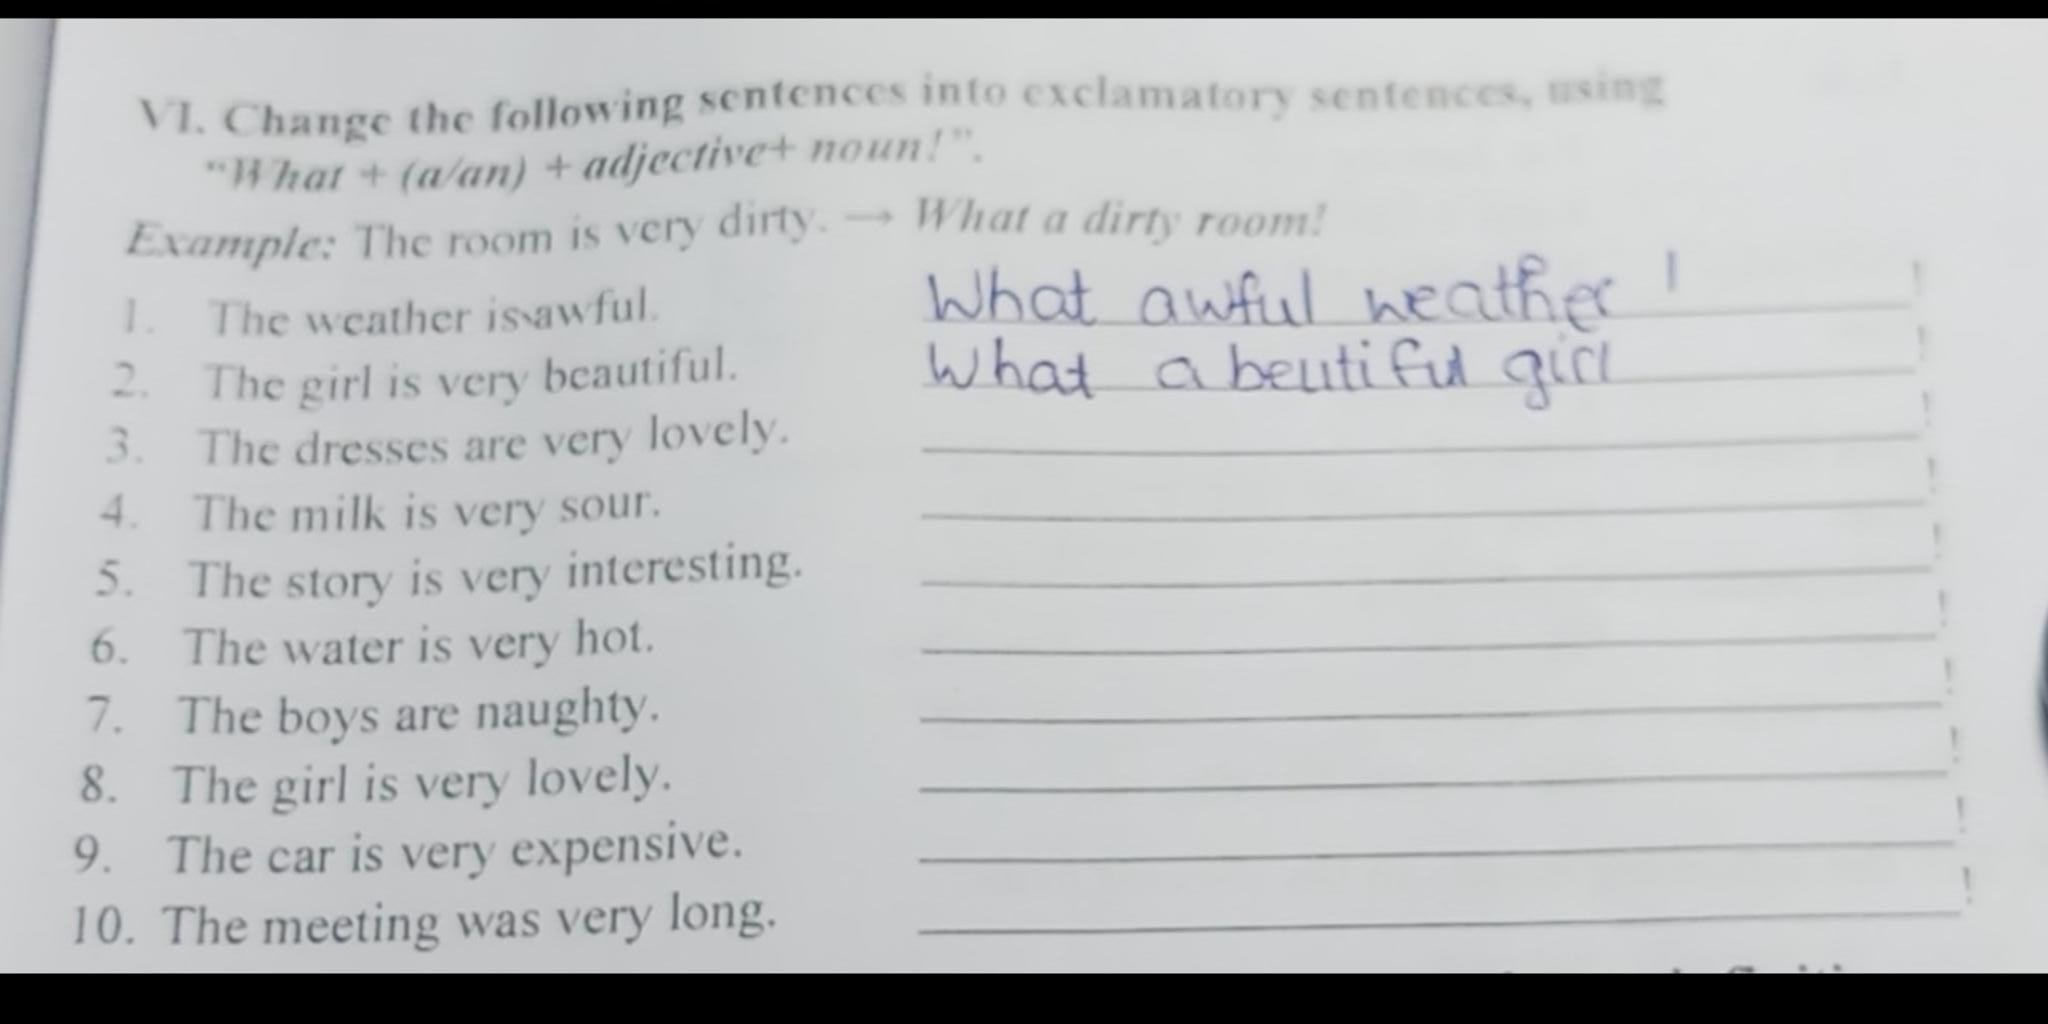 VI. Change the following sentences into exclamatory sentences, using
“What + (a/an) + adjective+ noun!”.
Example: The room is very dirty. → What a dirty room!
1. The weather is awful. What awful weather !
2. The girl is very beautiful. What a beutiful girl !
3. The dresses are very lovely. !
4. The milk is very sour. !
5. The story is very interesting. !
6. The water is very hot. !
7. The boys are naughty. !
8. The girl is very lovely. !
9. The car is very expensive. !
10. The meeting was very long. !